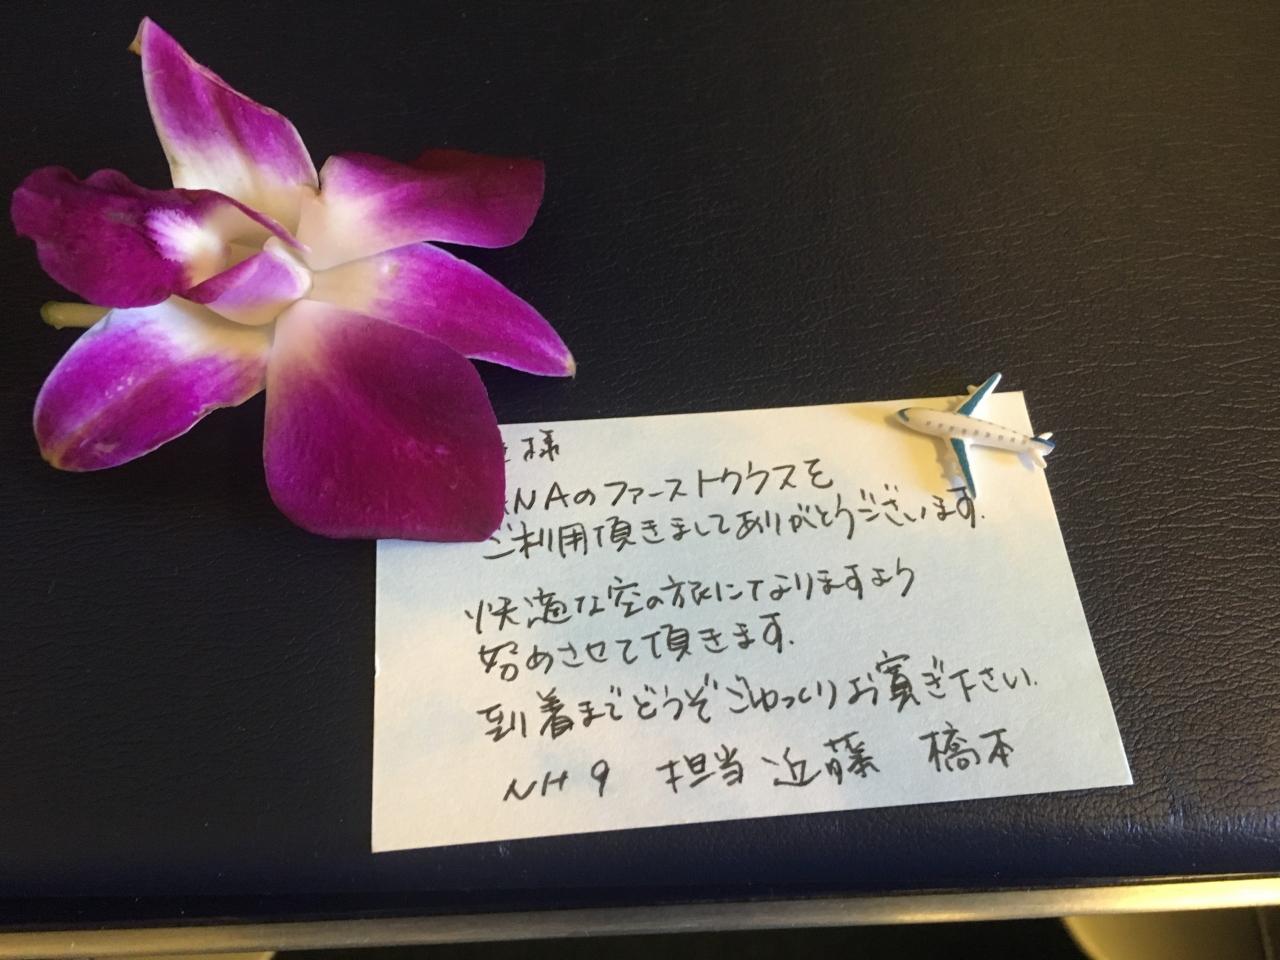 様
ANAのファーストクラスを
ご利用頂きましてありがとうございます.
快適な空の旅になりますよう
努めさせて頂きます.
到着までどうぞごゆっくりお寛ぎ下さい.
NH9 担当 近藤 橋本